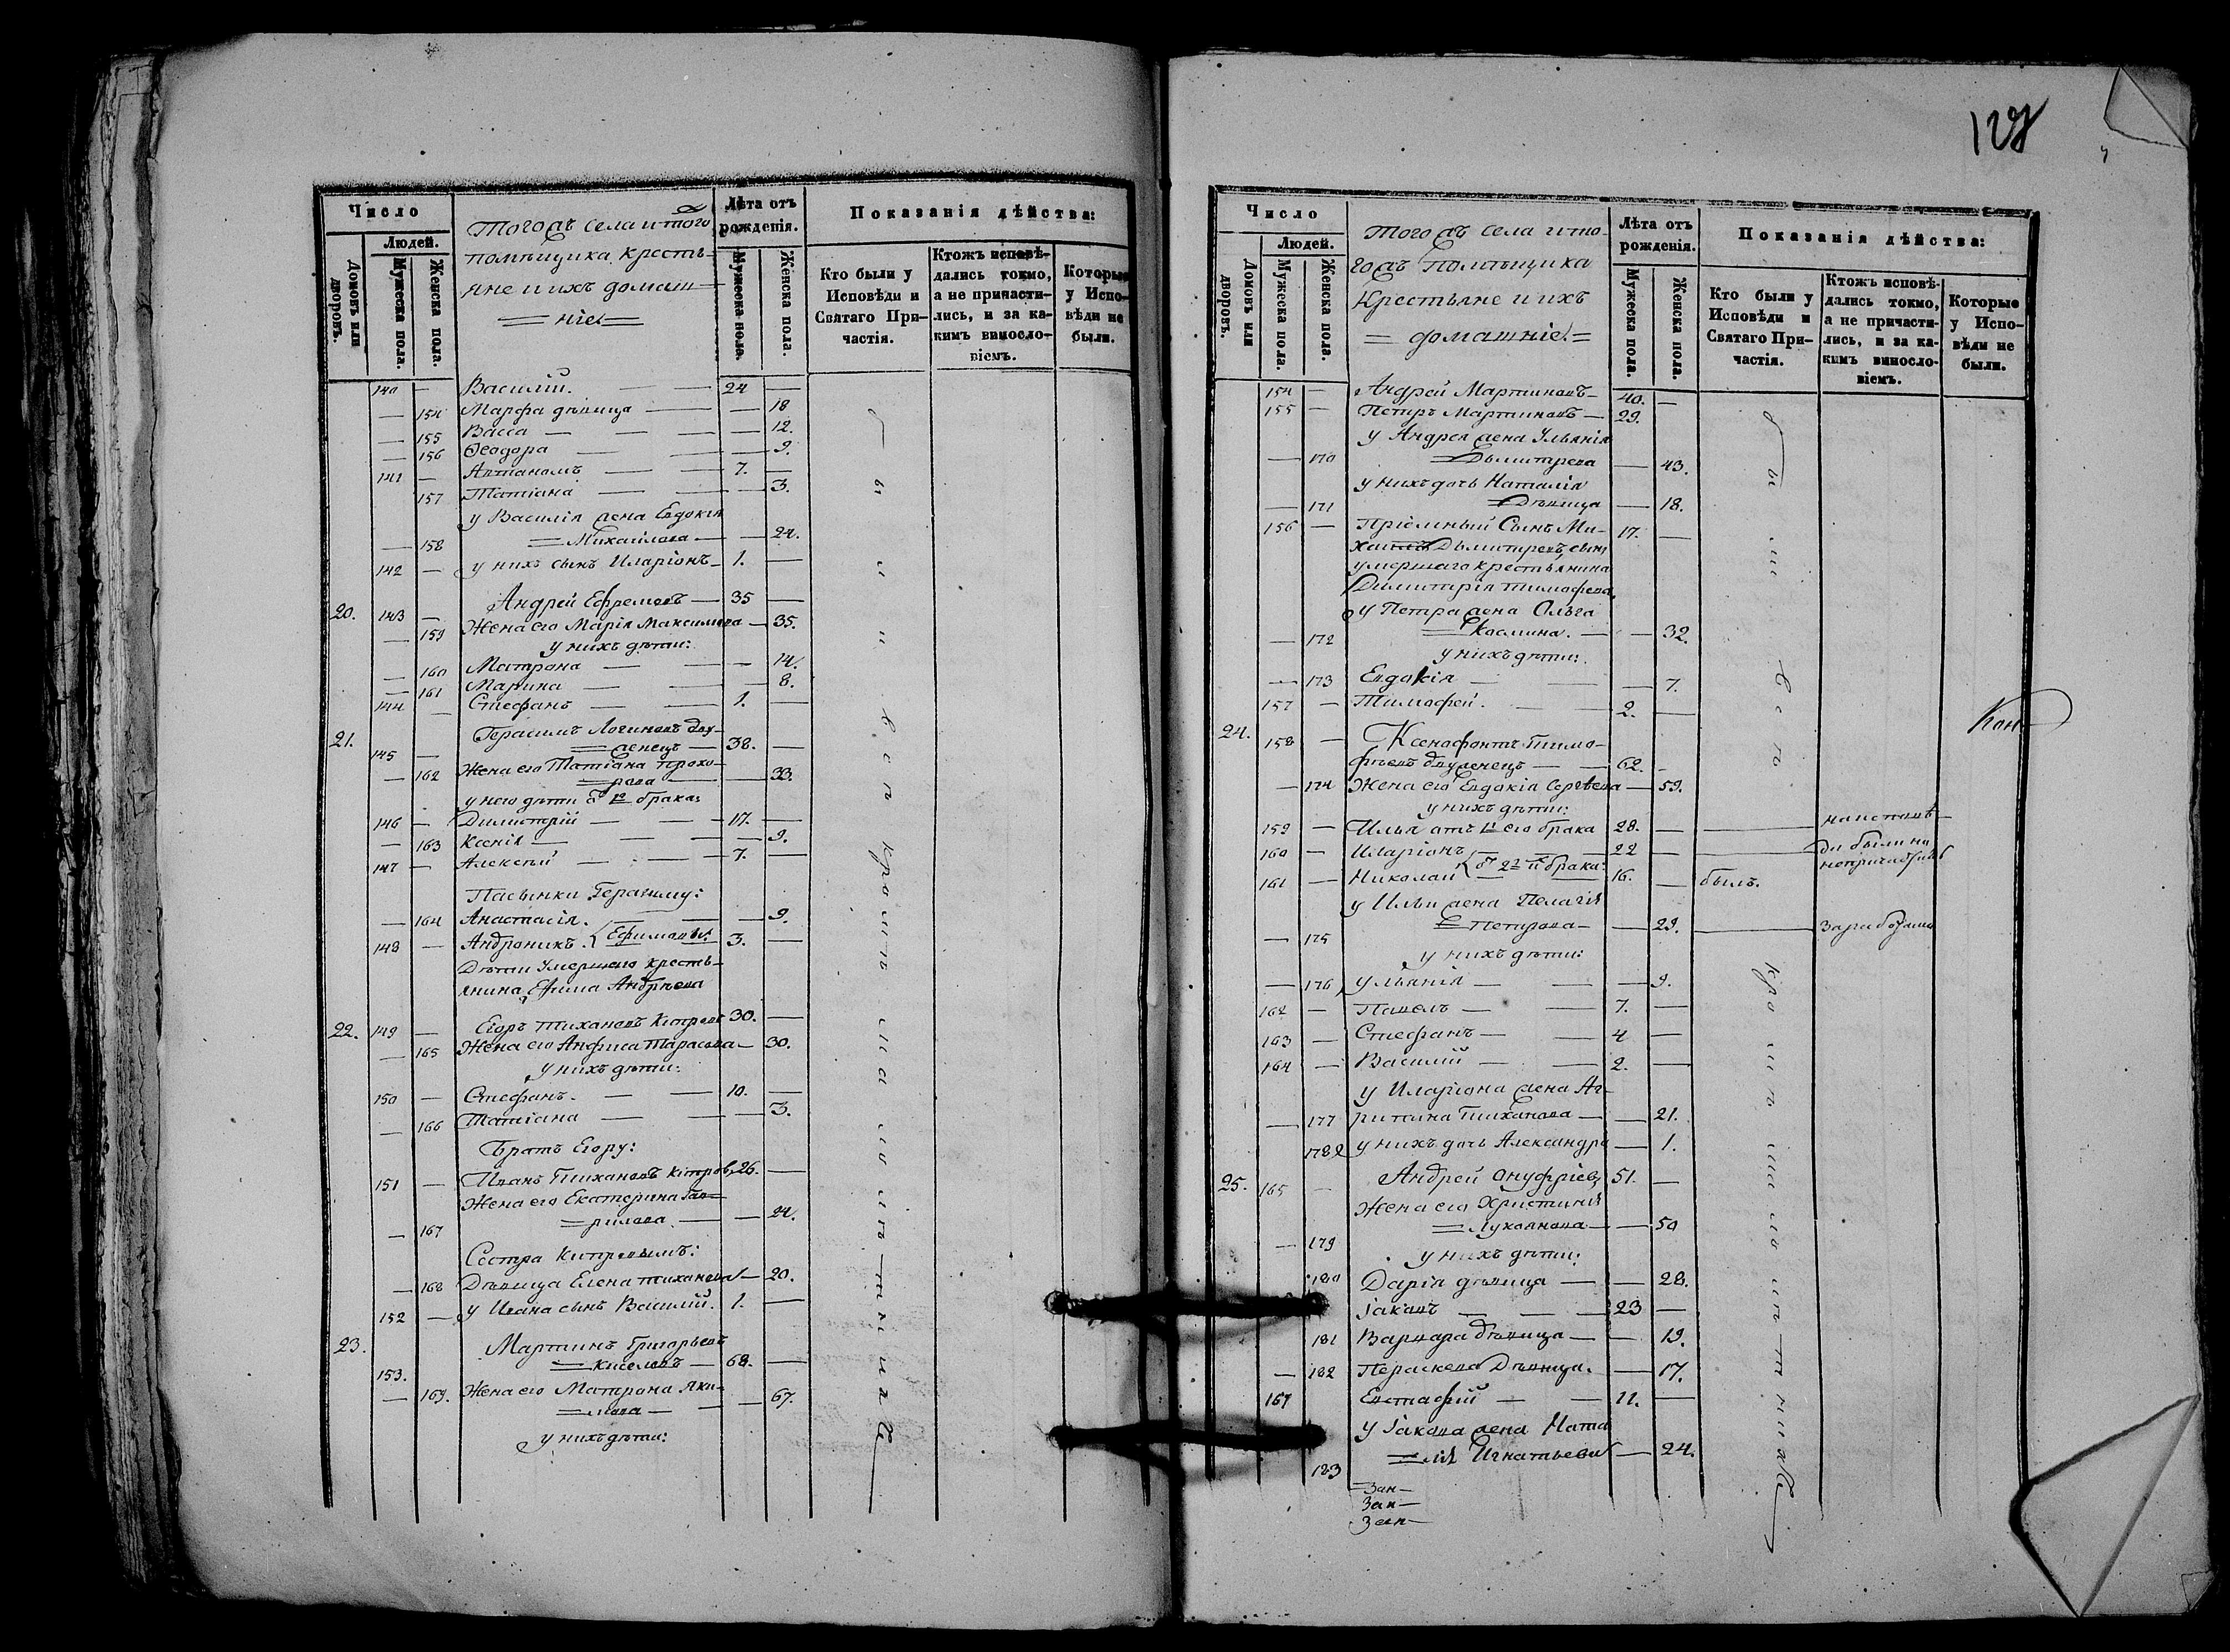 Число
Людей.
Домовъ или дворовъ.
Мужеска пола.
Женска пола.
Тогожъ села и того
помѣщика крестья-
яне и ихъ домаш-
ніе
Лѣта отъ рожденія.
Мужеска пола.
Женска пола.
Показанія дѣйства:
Кто были у Исповѣди и Святаго Причастія.
Ктожъ исповѣдались токмо, а не причастились, и за какимъ винословіемъ.
Которые у Исповѣди не были.
140 — Василій. — — 24 —
— 154 Марфа дѣвица — — 18
— 155 Васса — — — 12.
— 156 Ѳеодора — — 9.
141 — Автаномъ — — 7. —
157 Татіана — — 3.
у Василія жена Евдокія
— 158 Михайлова — — 24.
142 — у нихъ сынъ Иларіонъ — 1. —
20. 143 — Андрей Ефремовъ — 35 —
— 159 Жена его Марія Максимова — 35.
у нихъ дѣти:
— 160 Матрона — — 14.
— 161 Марина — — 8.
144 — Стефанъ — — 1. —
21. Герасимъ Логиновъ дву-
145 — женецъ — 38. —
— 162 Жена его Татіана Прохо-
рова — — 33.
у него дѣти отъ 1го брака:
146 — Димитрій — — 17. —
— 163 Ксенія — — 9.
147 — Алексѣй — — 7. —
Пасынки Герасиму:
— 164 Анастасія. — — 9.
148 — Андроникъ. Ефимовы. 3. —
Дѣти умершаго кресть-
янина Ефима Андреева
22. 149 — Егоръ Тихановъ Китровъ 30. —
— 165 Жена его Анфиса Тарасова — 30.
у нихъ дѣти:
150 — Стефанъ. — — 10. —
— 166 Татіана — — 3.
Братъ Егору:
151 — Иванъ Тихановъ Китровъ 26. —
Жена его Екатерина Гав-
— 167 рилова. — — 24.
Сестра Китровымъ:
— 168 Дѣвица Елена Тиханова — 20.
152 — у Ивана сынъ Василій. 1. —
23. Мартинъ Григорьевъ
153. Киселевъ — 68. —
— 169. Жена его Матрона Яки-
мова — — 67.
у нихъ дѣти:
были в скр
128
Число
Людей.
Домовъ или дворовъ.
Мужеска пола.
Женска пола.
Тогожъ села и то-
гожъ помѣщика
Крестьяне и ихъ
домашніе.
Лѣта отъ рожденія.
Мужеска пола.
Женска пола.
Показанія дѣйства:
Кто были у Исповѣди и Святаго Причастія.
Ктожъ исповѣдались токмо, а не причастились, и за какимъ винословіемъ.
Которые у Исповѣди не были.
154 — Андрей Мартиновъ — 40. —
155 — Петръ Мартиновъ — 29.
у Андрея жена Ульянія
— 170 Дымитрева — 43.
у нихъ дочь Наталія
— 171 Дѣвица — 18.
156 — Пріемный Сынъ Ми- 17. —
хаилъ Дымитревъ, сынъ
умершаго крестьянина
Димитрія Тимофева,
у Петра жена Ольга
— 172 Космина. — — 32.
у нихъ дѣти:
— 173 Евдокія — — 7.
157 — Тимофей. — 2. —
24. 158 — Ксенофонтъ Тимо-
фѣевъ двуженецъ — 62. —
— 174 Жена его Евдокія Сергѣева — 59.
у нихъ дѣти:
159 — Илья отъ 1го его брака 28. —
160 — Иларіонъ 22 —
161 — Николай отъ 2го брака: 16. — былъ.
у Ильи жена Пелагія
— 175 Петрова — — 29.
у нихъ дѣти:
— 176 Ульянія — — 9.
162 — Павелъ — — 7. —
163 — Стефанъ — — 4 —
164 — Василій — — 2. —
у Иларіона жена Аг-
— 177 рипина Тиханова — — 21.
178 у нихъ дочь Александра — 1.
25. 165 — Андрей Онуфріевъ 51. —
Жена его Христинія
— 179 Лукоянова — — 50
у нихъ дѣти:
180 Дарія дѣвица — — 28.
Іаковъ — — 23 —
181 Варвара дѣвица — — 19.
— 182 Параскева Дѣвица. — 17.
167 Евстафій — — 11. —
у Іакова жена Ната
183 лія Игнатьева — 24.